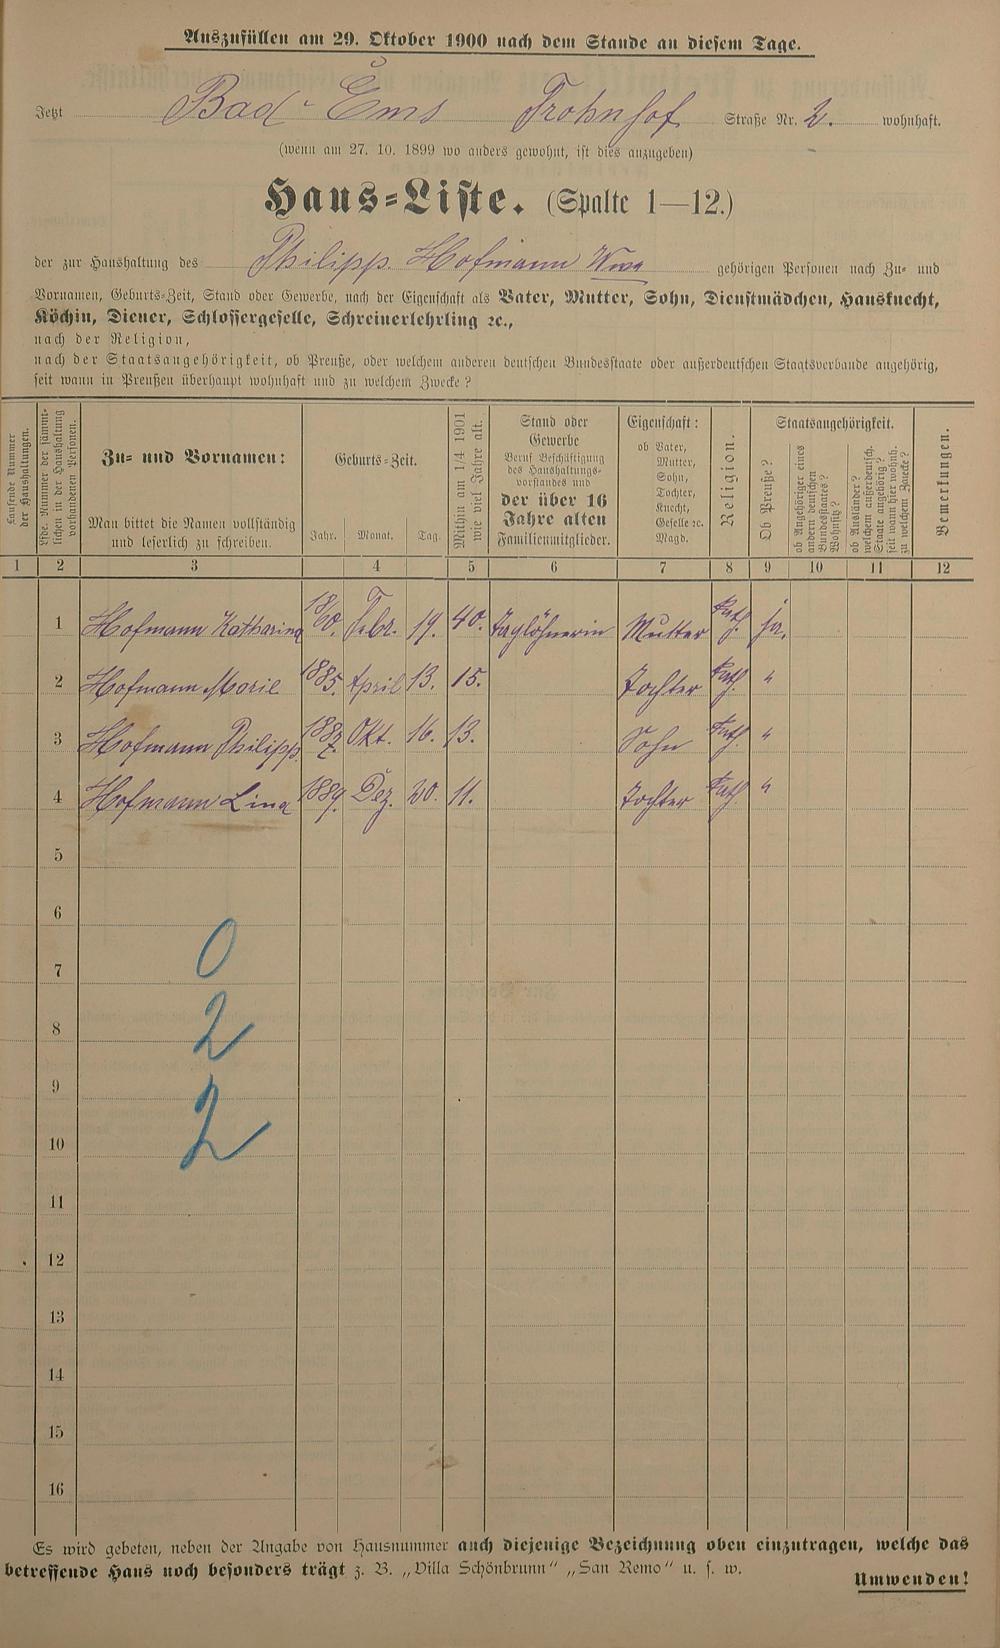 Auszufüllen am 29. Oktober 1900 nach dem Stande an diesem Tage.
Jetzt Bad-Ems Frohnhof Straße Nr. 2. wohnhaft.
(wenn am 27. 10. 1899 wo anders gewohnt, ist dies anzugeben)
Haus-Liste. (Spalte 1—12.)
der zur Haushaltung des Philipp Hofmann Wwe gehörigen Personen nach Zu- und
Vornamen, Geburts-Zeit, Stand oder Gewerbe, nach der Eigenschaft als Vater, Mutter, Sohn, Dienstmädchen, Hausknecht,
Köchin, Diener, Schlossergeselle, Schreinerlehrling ꝛc.,
nach der Religion,
nach der Staatsangehörigkeit, ob Preuße, oder welchem anderen deutschen Bundesstaate oder außerdeutschen Staatsverbande angehörig,
seit wann in Preußen überhaupt wohnhaft und zu welchem Zwecke?
Laufende Nummer
der Haushaltungen.
Lfde. Nummer der sämmt-
lichen in der Haushaltung
vorhandenen Personen.
Zu- und Vornamen:
Man bittet die Namen vollständig
und leserlich zu schreiben.
Geburts-Zeit.
Jahr. Monat. Tag.
Mithin am 1/4 1901
wie viel Jahre alt.
Stand oder
Gewerbe
Beruf Beschäftigung
des Haushaltungs-
vorstandes und
der über 16
Jahre alten
Familienmitglieder.
Eigenschaft:
ob Vater,
Mutter,
Sohn,
Tochter,
Knecht,
Geselle ꝛc.
Magd.
Religion.
Staatsangehörigkeit.
Ob Preuße?
ob Angehöriger eines
andern deutschen
Bundesstaates?
Wohnsitz?
ob Ausländer?
welchem außerdeutsch.
Staate angehörig?
seit wann hier wohnh.
zu welchem Zwecke?
Bemerkungen.
1 2 3 4 5 6 7 8 9 10 11 12
1 Hofmann Katharina 1860. Febr. 19. 40. Taglöhnerin Mutter Kath. ja.
2 Hofmann Marie 1885. April 13. 15. Tochter Kath. "
3 Hofmann Philipp 1887. Okt. 16. 13. Sohn Kath. "
4 Hofmann Lina 1889. Dez. 20. 11. Tochter Kath. "
5
6
0
7
8 2
9
10 2
11
12
13
14
15
16
Es wird gebeten, neben der Angabe von Hausnummer auch diejenige Bezeichnung oben einzutragen, welche das
betreffende Haus noch besonders trägt z. B. „Villa Schönbrunn" „San Remo" u. s. w.
Umwenden!